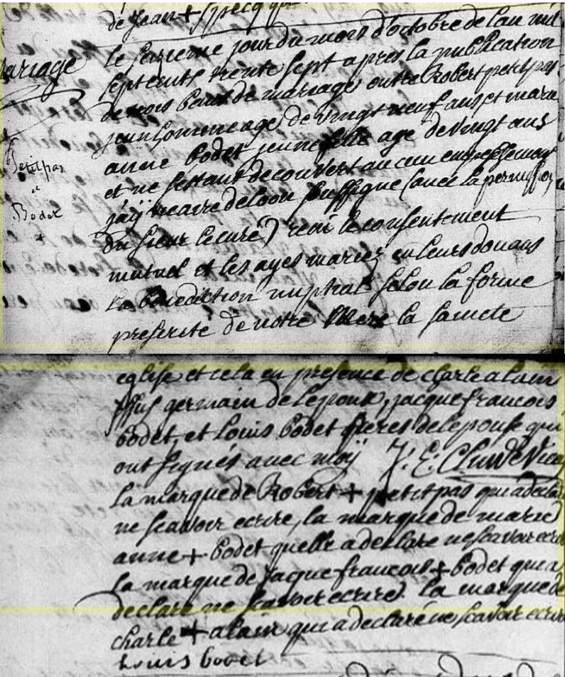 de Jean +
mariage
le saezieme jour du mois d'octobre de lan mil
sept cents trente sept apres la publication
de trois bans de mariage entre Robert petitpas
jeun homme age de vingt neuf ans et marie
anne bodet jeune fille age de vingt ans
et ne sestant decouvert aucun empeschement
jaÿ vicaire de loon soussigne (avec la permission
du sieur le curé) recu le consentement
mutuel et les ayes mariez en leurs donans
la benediction nuptial selon la forme
prescrite de notre mere la saincte
Petitpas
et
Bodet
+
eglise et cela en presence de charle alain
germain de lepoux, jacque francois
bodet, et louis bodet freres de lepouse qui
ont signés avec moÿ J. E.
la marque de Robert + petitpas qui a declaré
ne scavoir ecrire, la marque de marie
anne + bodet quelle a declare ne scavoir ecrire
la marque de jaque francois + bodet qui a
declaré ne scavoir ecrire. la marque de
charle + alain qui a declaré ne scavoir ecrire
Louis bodet